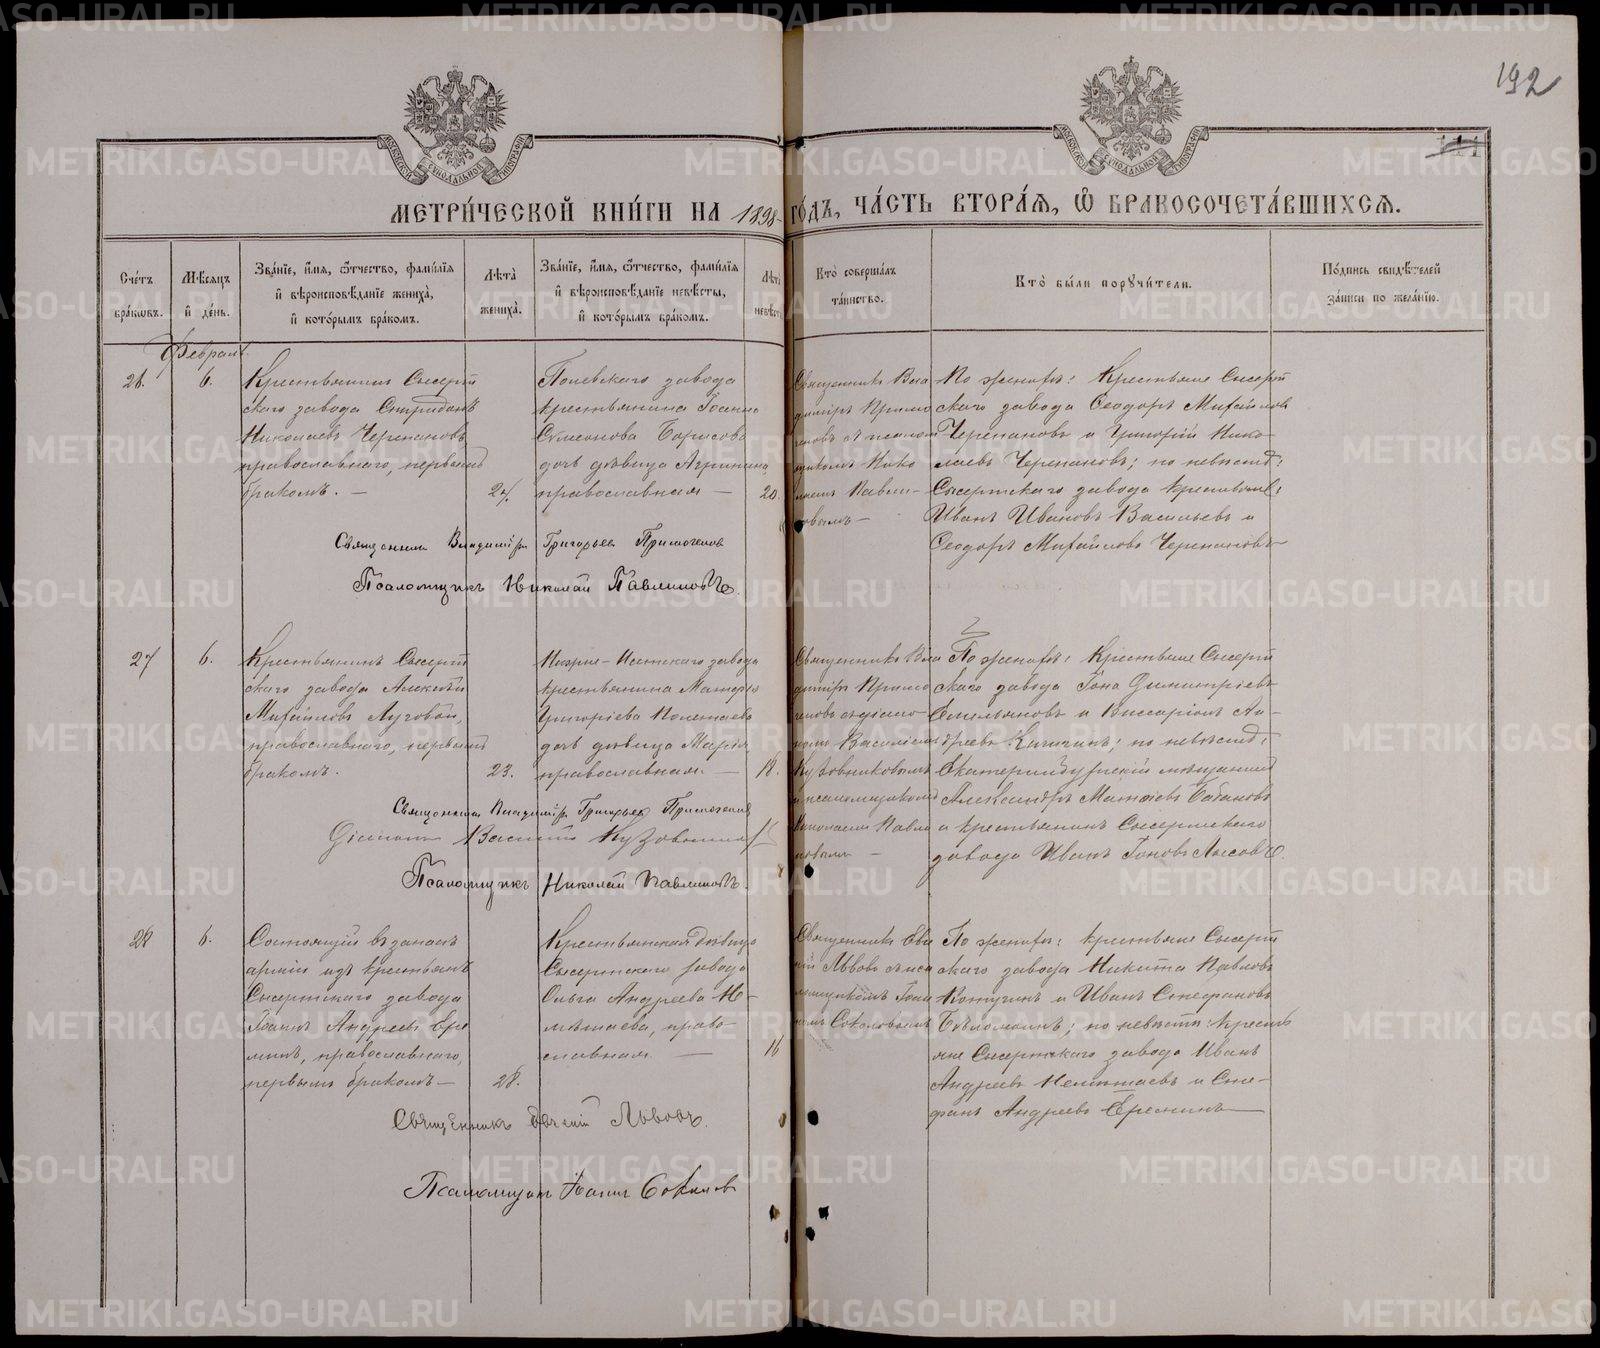 192
МЕТРИ́ЧЕСКОЙ КНИ́ГИ НА 1898 ГО́ДЪ, ЧА́СТЬ ВТОРА́Я, Ѡ БРАКОСОЧЕТА́ВШИХСЯ.
Сче́тъ бра́ковъ.
Мѣ́сяцъ и де́нь.
Зва́нїе, и́мя, ѻ́тчество, фами́лїя и вѣроисповѣ́данїе жениха̀, и кото́рымъ бра́комъ.
Лѣта̀ жениха̀.
Зва́нїе, и́мя, ѻ́тчество, фами́лїя и вѣроисповѣ́данїе невѣ́сты, и кото́рымъ бра́комъ.
Лѣта̀ невѣсты
Кто̀ соверша́лъ та́инство.
Кто̀ бы́ли порꙋчи́тели.
По́дпись свидѣ́телей за́писи по жела́нїю.
Февраль
26.
6.
Крестьянинъ Сысерт
скаго завода Спиридонъ
Николаевъ Черепановъ
православнаго, первымъ
бракомъ. —
24.
Полевскаго завода
крестьянина Іоанна
Симеонова Борисова
дочь дѣвица Агрипина
православная —
20.
Священникъ Вла
диміръ Примо
геновъ съ псалом
щикомъ Нико
лаемъ Павли-
новымъ —
По жених: Крестьяне Сысерт
скаго завода Ѳеодоръ Михайловъ
Черепановъ и Григорій Нико
лаевъ Черепановъ; по невѣст:
Сысертскаго завода крестьяне:
Иванъ Ивановъ Васильевъ и
Ѳеодоръ Михайловъ Черепановъ
Священникъ Владиміръ Григорьевъ Примогеновъ
Псаломщикъ Николай Павлиновъ.
27
6.
Крестьянинъ Сысерт
скаго завода Алексѣй
Михайловъ Луговой,
православнаго, первымъ
бракомъ.
23.
Верхне-Исетскаго завода
крестьянина
Григоріева
дочь дѣвица Марія,
православная. —
18.
Священникъ Вла
диміръ Примо
геновъ съ діако-
номъ Василіемъ
Кузовниковымъ
и псаломщикомъ
Николаемъ Павли
новымъ —
По жених: Крестьяне Сысерт
скаго завода Іона Димитріевъ
Емельяновъ и Виссаріонъ Ан-
дреевъ по невѣст:
Екатеринбургскій мѣщанинъ
Александръ Матвѣевъ Бабиновъ
и крестьянинъ Сысертскаго
завода Иванъ Іоновъ Лысовъ.
Священникъ Владиміръ Григорьевъ Примогеновъ
Діаконъ Василій Кузовниковъ
Псаломщикъ Николай Павлиновъ.
28
6.
Состоящій въ запасѣ
арміи изъ крестьянъ
Сысертскаго завода
Іоаннъ Андреевъ Ере
минъ, православнаго,
первымъ бракомъ —
28.
Крестьянская дѣвица
Сысертскаго завода
Ольга Андреева Не-
мытаева, право-
славная —
16
Священникъ Евг
ній Львовъ съ пса
ломщикомъ Іоан
номъ Соколовымъ
По жених: крестьяне Сысерт
скаго завода Никита Павловъ
Кочугинъ и Иванъ Стефановъ
по невѣстѣ: крест
яне Сысертскаго завода Иванъ
Андреевъ Немытаевъ и Сте-
фанъ Андреевъ Ереминъ
Священникъ Евгеній Львовъ.
Псаломщикъ Іоаннъ Соколовъ